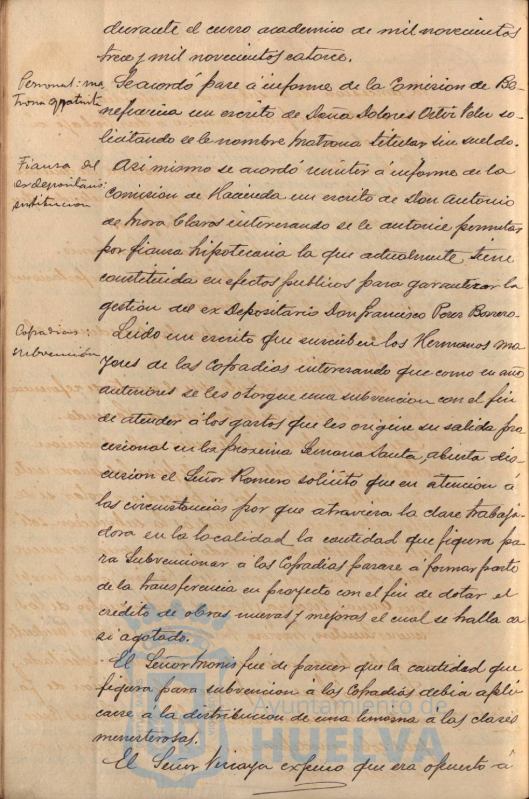 durante el curso academico de mil novecientos
trece y mil novecientos catorce.
Personal: ma
trona gratuita
Se acordó pase á informe de la Comision de Be
neficencia un escrito de Doña Dolores Ortiz Velez so
licitando se le nombre matrona titular sin sueldo.
Fianza del
ex depositario:
sustitucion
Asi mismo se acordó remitir á informe de la
Comision de Hacienda un escrito de Don Antonio
de Mora Claros interesando se le autorice permutar
por fianza hipotecaria la que actualmente tiene
constituida en efectos publicos para garantizar la
gestión del ex Depositario Don Francisco Perez Barrero.
Cofradias:
subvención
Leido un escrito que suscriben los Hermanos ma
yores de las Cofradias interesando que como en años
anteriores se les otorgue una subvencion con el fin
de atender á los gastos que les origine su salida pro
cesional en la proxima Semana Santa, abierta dis-
cusion el Señor Romero solicitó que en atención á
las circunstancias por que atraviesa la clase trabaja
dora en la localidad la cantidad que figura pa
ra subvencionar á las Cofradias pasare á formar parte
de la transferencia en proyecto con el fin de dotar el
crédito de obras nuevas y mejoras el cual se halla ca
si agotado.
El Señor Monis fue de parecer que la cantidad que
figura para subvencion á las Cofradias debia apli
carse á la distribucion de una limosna á las clases
menesterosas.
El Señor Vizcaya expuso que era opuesto á
Ayuntamiento de
HUELVA